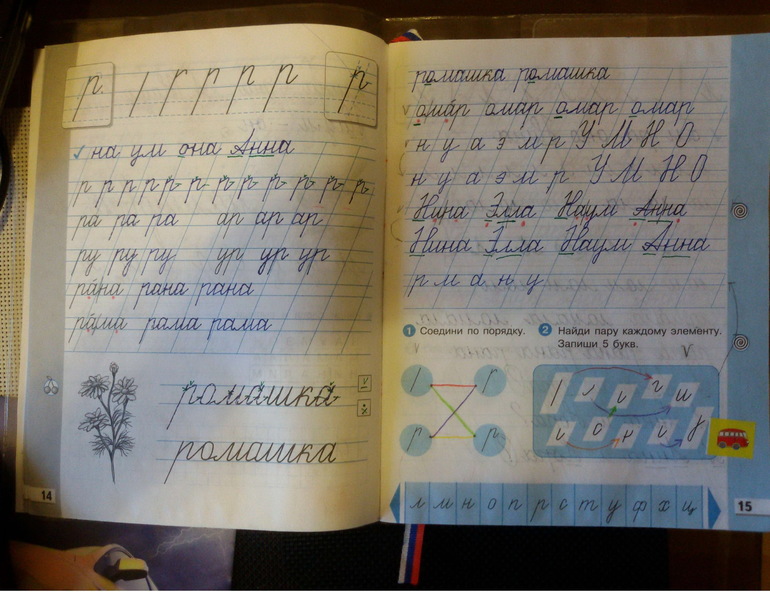 р р р р р
на ум она Анна
р р р р р р р р р р р р р р
ра ра ра ар ар ар
ру ру ру ур ур ур
рана рана рана
рама рама рама
ромашка
ромашка
14
ромашка ромашка
омар омар омар омар
н у а э м р У М Н О
н у а э м р У М Н О
Нина Элла Наум Анна
Нина Элла Наум Анна
р м а н у
1 Соедини по порядку.
2 Найди пару каждому элементу.
Запиши 5 букв.
л м н о п р с т у ф х ц
15